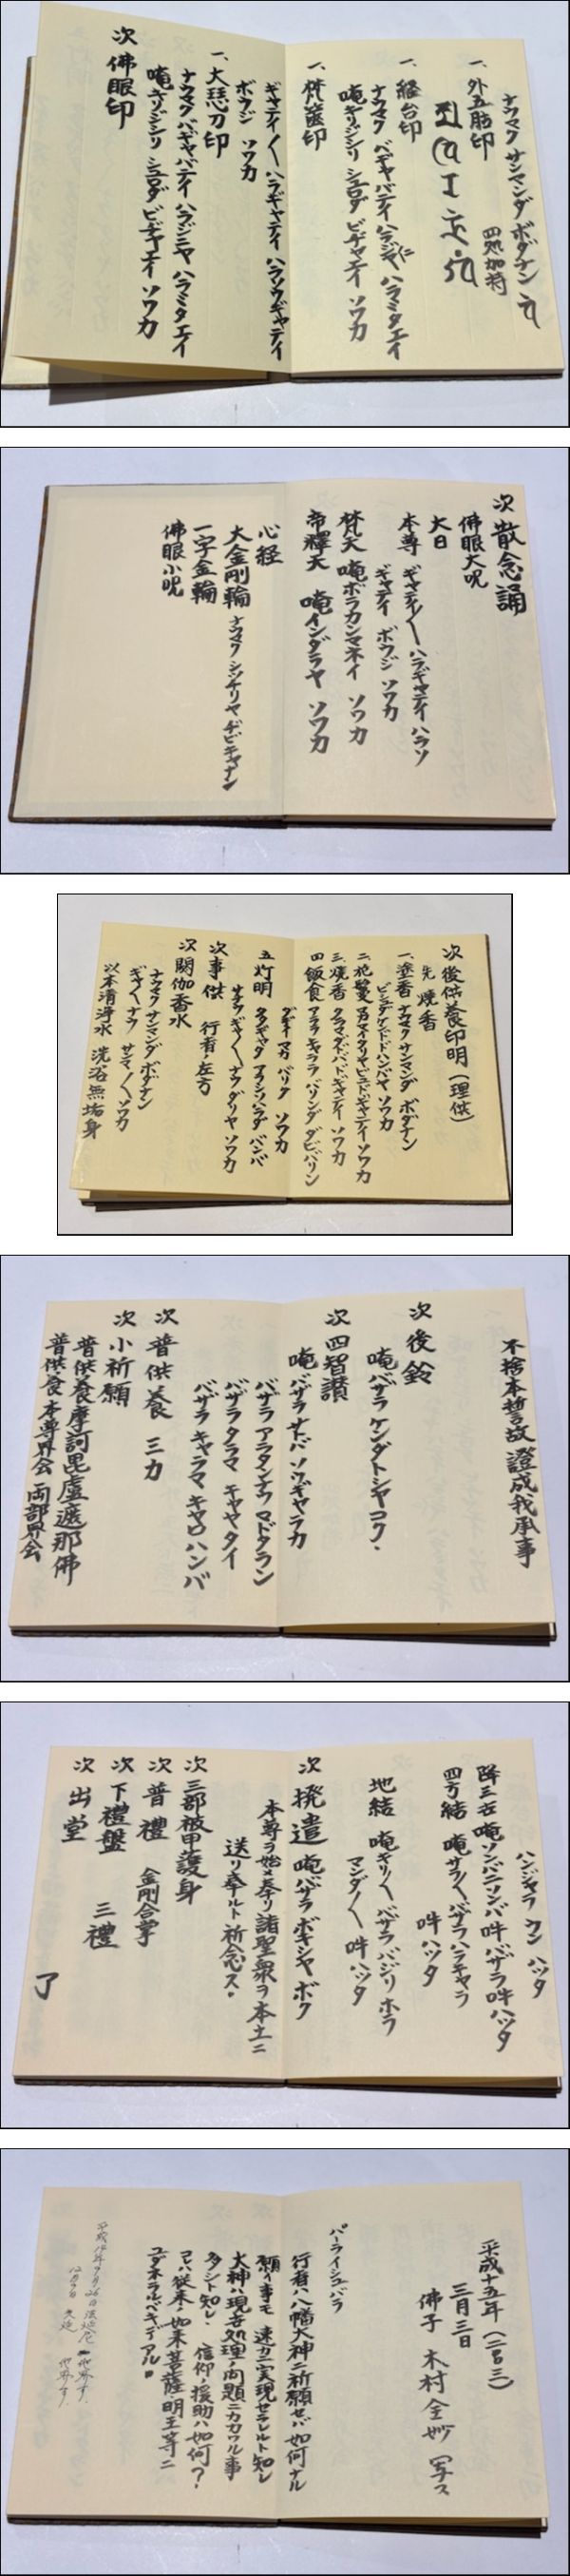 ナウマク サンマンダ ボダナン
一、外五肪印
四処加持
一、経台印
ナウマク バギャバティ ハラジャ ハラミタエイ
唵キリジシリ シュロダ ビヂャエイ ソワカ
一、梵篋印
ギャテイ〱 ハラギャテイ ハラソウギャテイ
ボウジ ソワカ
一、大慧刀印
ナウマク バギャバティ ハラジニャ ハラミタエイ
唵キリジシリ シュロダ ビヂャエイ ソワカ
次 佛眼印
次 散念誦
佛眼大呪
大日
本尊 ギャテイ〱 ハラギャテイ ハラソ
ギャテイ ボウジ ソワカ
梵天 唵ボラカンマネイ ソワカ
帝釋天 唵インダラヤ ソワカ
心経
大金剛輪 ナウマク シッチリヤ ヂビキャナン
一字金輪
佛眼小呪
次 後供養印明(理供)
先 焼香
一、塗香 ナウマクサンマンダ ボダナン
ビシュダゲンドドハンバヤ ソワカ
二、花鬘 マカマイタリヤビユドギャテイ ソワカ
三、焼香 タラマダドバドギャテイ ソワカ
四 飯食 アララ キャララ バリンダ ダビバリン
ダデイ マカ バリク ソワカ
五 灯明 タタギャタ アラシハラダ バンバ
ナウ ダリヤ ソワカ
次 事供 行者ノ左方
次 閼伽香水
ナウマクサンマンダ ボダナン
ギャ〱ナウ サンマ〱 ソワカ
以本清浄水 洗浴無垢身
不捨本誓故 證成我承事
次 後鈴
唵 バザラ ケンダ トシヤコク・
次 四智讃
唵 バザラ サトバ ソウギャラカ
バザラ アラタンナウ マドタラン
バザラ タラマ キャヤタイ
バザラ キャラマ キャロ ハンバ
次 普供養 三力
次 小祈願
普供養摩訶毘盧遮那佛
普供養 本尊界会 両部界会
ハンジャラ ウン ハッタ
降三世 唵ソンバニソンバ 吽 バザラ吽 ハッタ
四方結 唵サラ〱バザラハラキャラ
吽 ハッタ
地結 唵キリ〱バザラ バジリ ホラ
マンダ〱 吽 ハッタ
次 撥遣 唵 バザラ ボキシャ ボク
本尊ヲ始メ奉リ 諸聖衆ヲ 本土ニ
送リ奉ルト 祈念ス・
次 三部被甲護身
次 普禮 金剛合掌
次 下禮盤 三禮
次 出堂
了
平成十五年(二〇〇三)
三月三日
佛子 木村全妙 写ス
パーライシュバラ
行者ハ八幡大神ニ祈願セバ 如何ナル
願イ事モ 速カニ実現セラレルト知レ
大神ハ現世処理ノ問題ニカカワル事
多シト知レ・ 信仰ノ援助ハ如何?
コハ従来ノ如来 菩薩 明王等ニ
ユダネラルベキデアル。